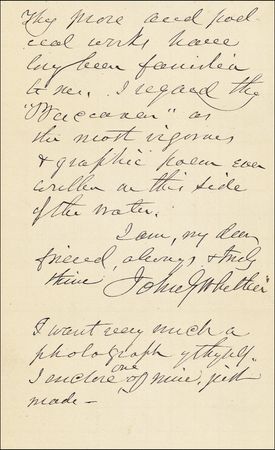 Thy prose and poet-
ical works have
long been familiar
to me. I regard thy
"Buccaneer" as
the most vigorous
& graphic poem ever
written on this side
of the water.
I am, my dear
friend, always & truly
thine John G Whittier
I want very much a
photograph of thyself.
I enclose one of mine, just
made —